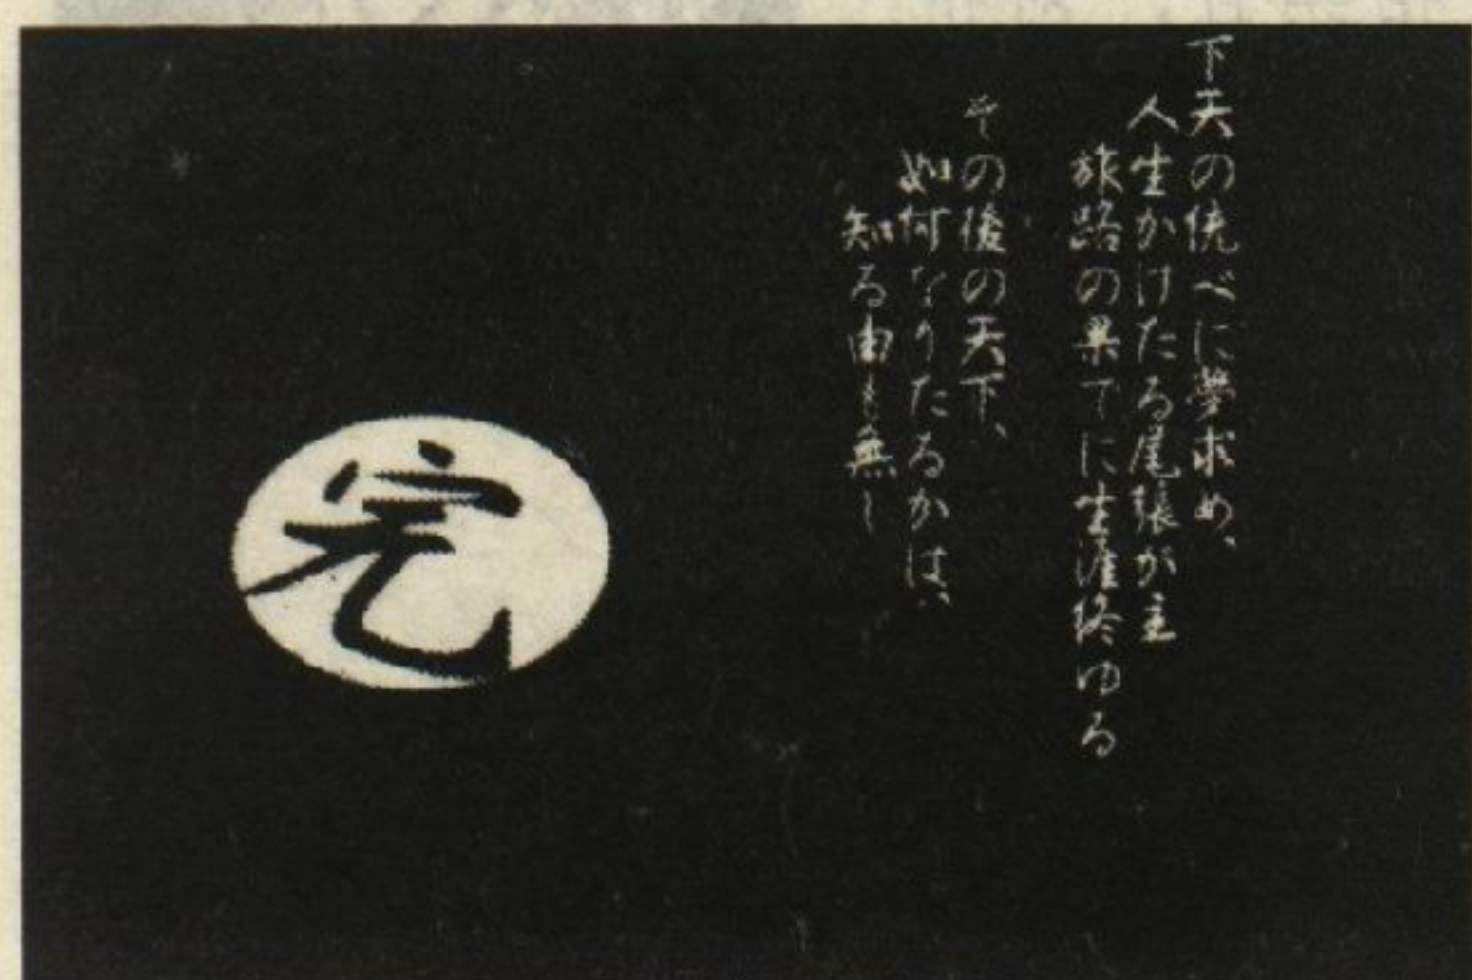 下天の統べに夢求め、
人生かけたる尾張が主
旅路の果てに生涯終ゆる
その後の天下、
如何なりたるかは、
知る由も無し
完